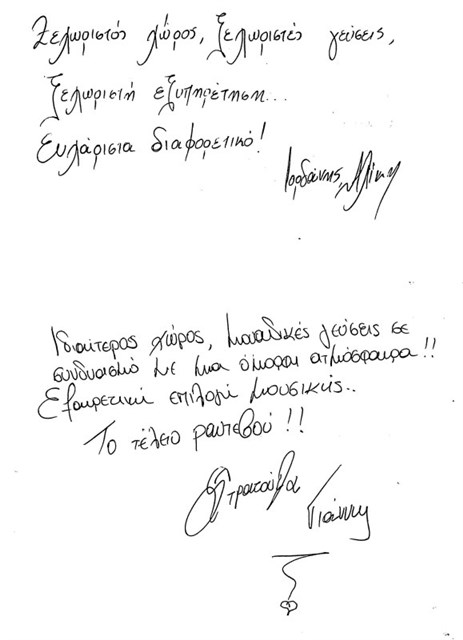 Ξεχωριστός χώρος, ξεχωριστές γεύσεις,
ξεχωριστή εξυπηρέτηση...
Ευχάριστα διαφορετικό!
Ιορδάνης, Αλίκη
Ιδιαίτερος χώρος, μοναδικές γεύσεις σε
συνδυασμό με μια όμορφη ατμόσφαιρα!!
Εξαιρετική επιλογή μουσικής..
Το τέλειο ραντεβού!!
Γιάννης